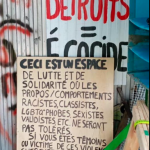 DÉTRUITS
=
ÉCOCIDE
CECI EST UN ESPACE
DE LUTTE ET DE
SOLIDARITÉ OÙ LES
PROPOS/COMPORTEMENTS
RACISTES, CLASSISTES,
LGBTQ+PHOBES, SEXISTES
VALIDISTES ETC. NE SERONT
PAS TOLÉRÉS.
SI VOUS ÊTES TÉMOINS
OU VICTIME DE CES VIOLENCES